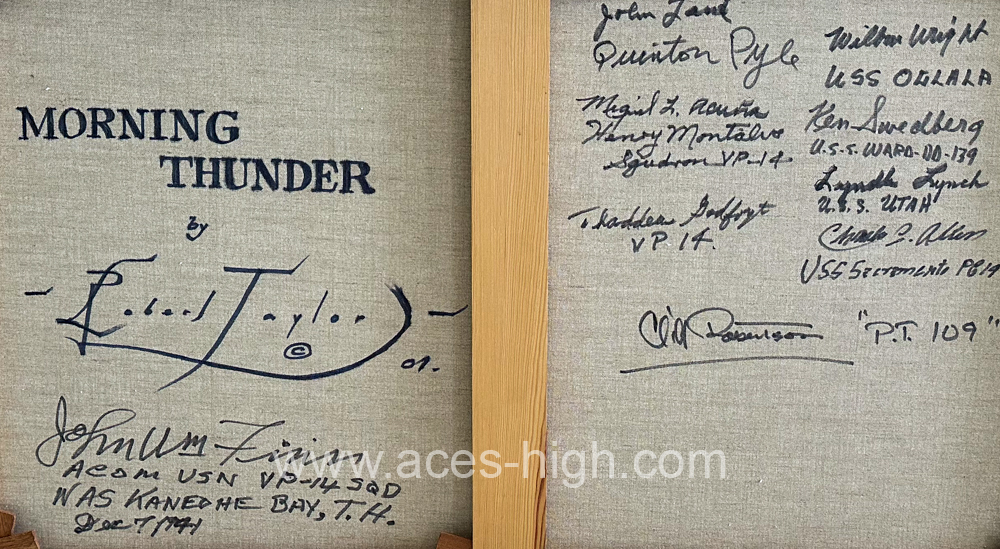 MORNING
THUNDER
by
Robert Taylor
©
01.
John Wm Finn
ACOM USN VP-14 SQD
NAS KANEOHE BAY, T.H.
Dec 7 1941
John
Quinton Pyle
Miguel L. Acuña
Henry Montalvo
Squadron VP-14
Thaddeu Godfryt
VP 14.
Wilbur Wright
USS OGLALA
Ken Swedberg
U.S.S. WARD-DD-139
Lyndle Lynch
U.S.S. UTAH
Charles S. Allen
USS Sacramento PG 19
Cliff Robertson "P.T. 109"
www.aces-high.com